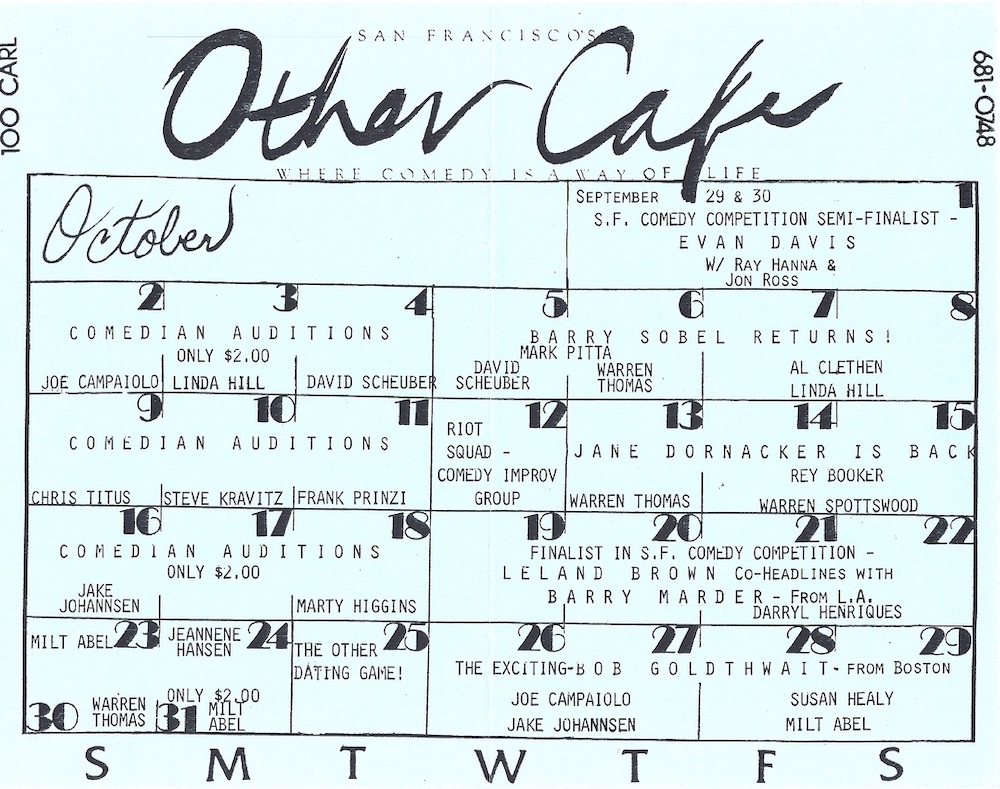 SAN FRANCISCO'S
Other Cafe
100 CARL
681-0748
WHERE COMEDY IS A WAY OF LIFE
October
SEPTEMBER 29 & 30
1
S.F. COMEDY COMPETITION SEMI-FINALIST -
EVAN DAVIS
W/ RAY HANNA &
JON ROSS
2 3 4 5 6 7 8
COMEDIAN AUDITIONS
ONLY $2.00
JOE CAMPAIOLO
LINDA HILL
DAVID SCHEUBER
BARRY SOBEL RETURNS!
MARK PITTA
DAVID
SCHEUBER
WARREN
THOMAS
AL CLETHEN
LINDA HILL
9 10 11 12 13 14 15
COMEDIAN AUDITIONS
CHRIS TITUS
STEVE KRAVITZ
FRANK PRINZI
RIOT
SQUAD -
COMEDY IMPROV
GROUP
JANE DORNACKER IS BACK
WARREN THOMAS
REY BOOKER
WARREN SPOTTSWOOD
16 17 18 19 20 21 22
COMEDIAN AUDITIONS
ONLY $2.00
JAKE
JOHANNSEN
MARTY HIGGINS
FINALIST IN S.F. COMEDY COMPETITION -
LELAND BROWN CO-HEADLINES WITH
BARRY MARDER - FROM L.A.
DARRYL HENRIQUES
23 24 25 26 27 28 29
MILT ABEL
JEANNENE
HANSEN
ONLY $2.00
THE OTHER
DATING GAME!
THE EXCITING-BOB GOLDTHWAIT- FROM BOSTON
JOE CAMPAIOLO
JAKE JOHANNSEN
SUSAN HEALY
MILT ABEL
30
WARREN
THOMAS
31
MILT
ABEL
S M T W T F S